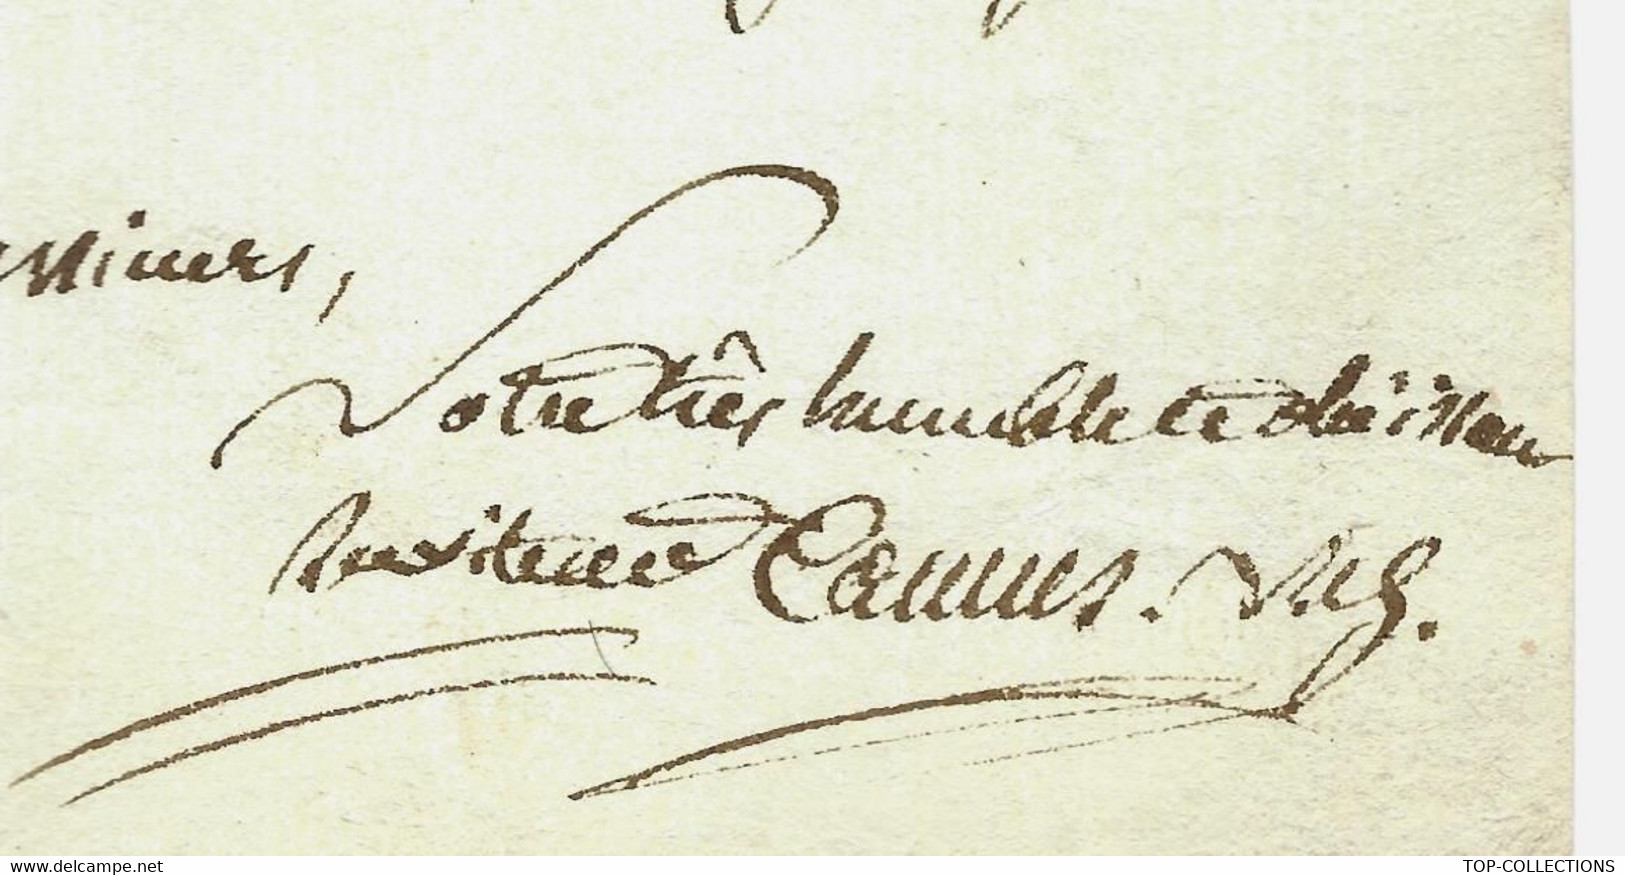 Messieurs,
Votre très humble et obéissant
serviteur Camus. Nég.
delcampe.net
TOP-COLLECTIONS